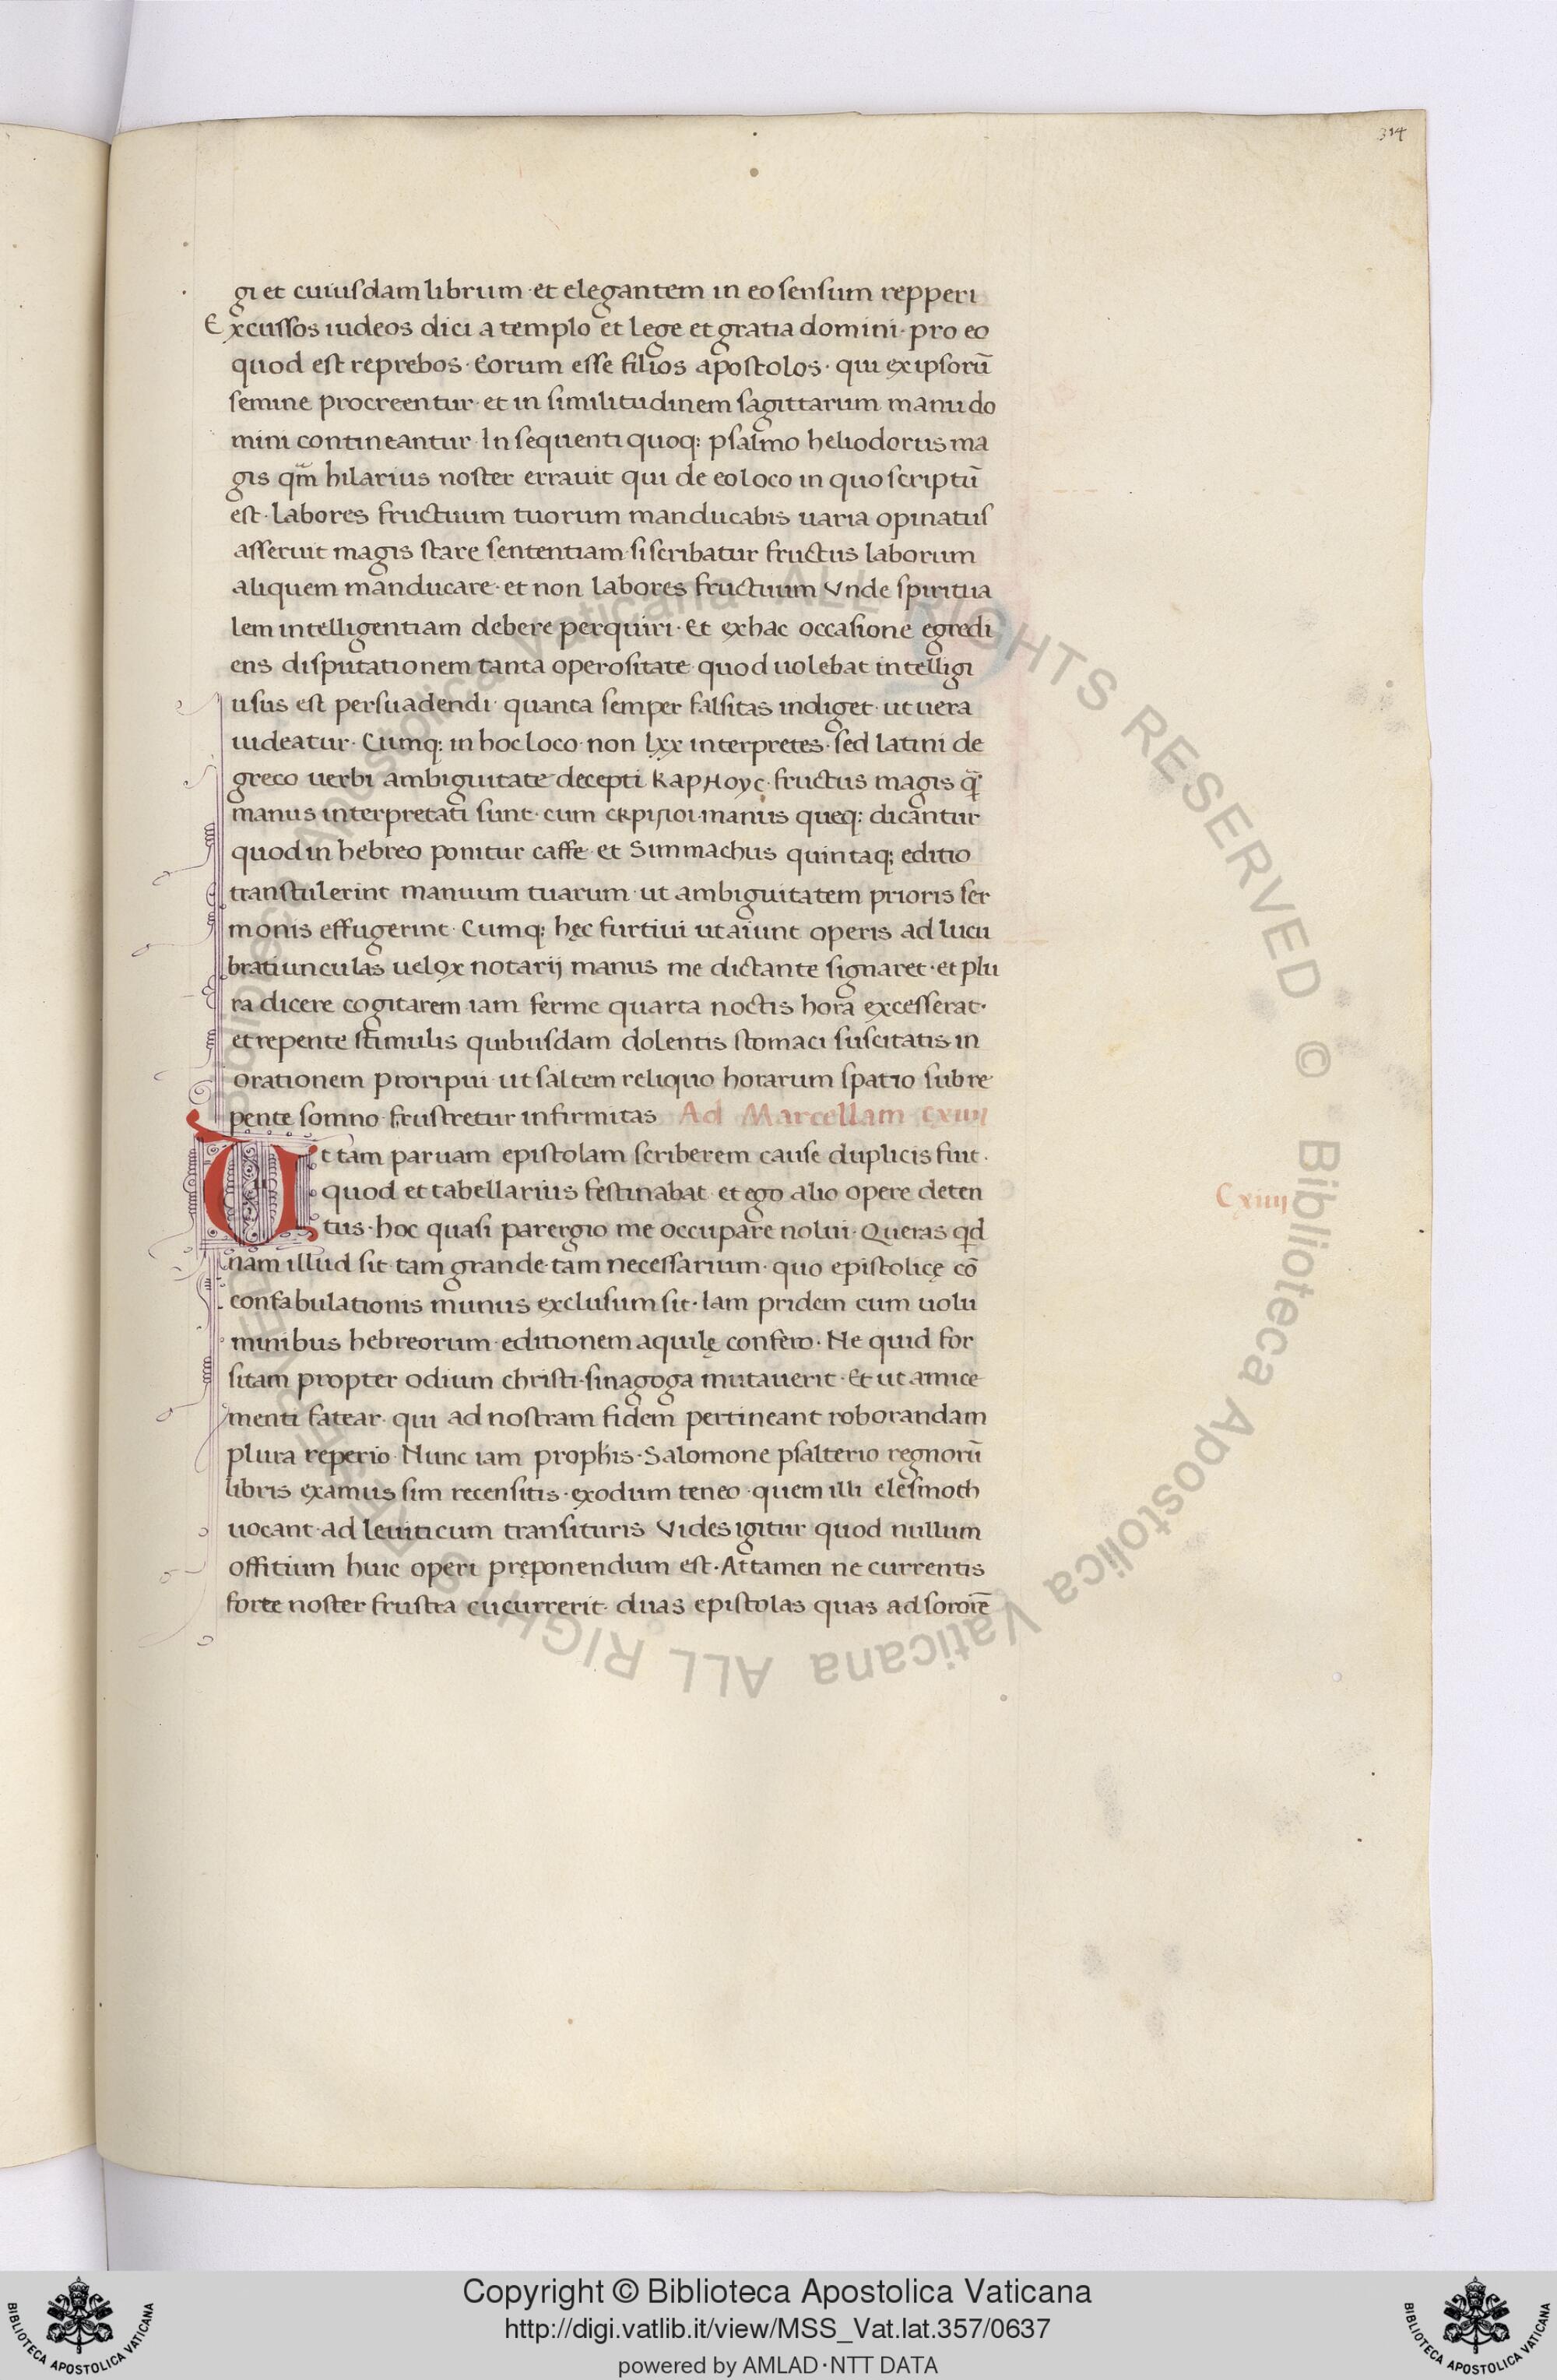 314
gi et cuiusdam librum · et elegantem in eo sensum repperi
Excussos iudeos dici a templo et lege et gratia domini · pro eo
quod est reprebos · Eorum esse filios apostolos · qui ex ipsorū
semine procreentur · et in similitudinem sagittarum manu do
mini contineantur · In sequenti quoq; psalmo heliodorus ma
gis qm̄ hilarius noster errauit qui de eo loco in quo scriptū
est · labores fructuum tuorum manducabis uaria opinatus
asseruit magis stare sententiam · si scribatur fructus laborum
aliquem manducare · et non labores fructuum Vnde spiritua
lem intelligentiam debere perquiri · Et ex hac occasione egredi
ens disputationem tanta operositate quod uolebat intelligi
usus est persuadendi · quanta semper falsitas indiget · ut uera
uideatur · Cumq; in hoc loco non lxx interpretes · sed latini de
greco uerbi ambiguitate decepti καρποyc · fructus magis q̄
manus interpretati sunt · cum cκριποι · manus queq; dicantur
quod in hebreo ponitur caffe · et Simmachus quintaq; editio
transtulerint manuum tuarum · ut ambiguitatem prioris ser
monis effugerint · Cumq; hęc furtiui ut aiunt operis ad lucu
bratiunculas uelox notarij manus me dictante signaret · et plu
ra dicere cogitarem iam ferme quarta noctis hora excesserat ·
et repente stimulis quibusdam dolentis stomaci suscitatis in
orationem proripui ut saltem reliquo horarum spatio subre
pente somno frustretur infirmitas Ad Marcellam cxiiij
Ut tam paruam epistolam scriberem cause duplicis fuit ·
quod et tabellarius festinabat · et ego alio opere deten
tus · hoc quasi parergio me occupare nolui · Queras qd
nam illud sit tam grande tam necessarium · quo epistolicę cō
confabulationis munus exclusum sit · Iam pridem cum uolu
minibus hebreorum editionem aquilę confero · Ne quid for
sitam propter odium christi · sinagoga mutauerit · Et ut amice
menti fatear · qui ad nostram fidem pertineant roborandam
plura reperio · Nunc iam prophis · Salomone psalterio regnorū
libris examus sim recensitis · exodum teneo · quem illi elesmoth
uocant · ad leuiticum transituris Vides igitur quod nullum
offitium huic operi pręponendum est · Attamen ne currentis
forte noster frustra cucurrerit · duas epistolas quas ad sororē
Cxiiij
ALL RIGHTS RESERVED © Biblioteca Apostolica Vaticana
Copyright © Biblioteca Apostolica Vaticana
http://digi.vatlib.it/view/MSS_Vat.lat.357/0637
powered by AMLAD·NTT DATA
BIBLIOTECA APOSTOLICA VATICANA
BIBLIOTECA APOSTOLICA VATICANA